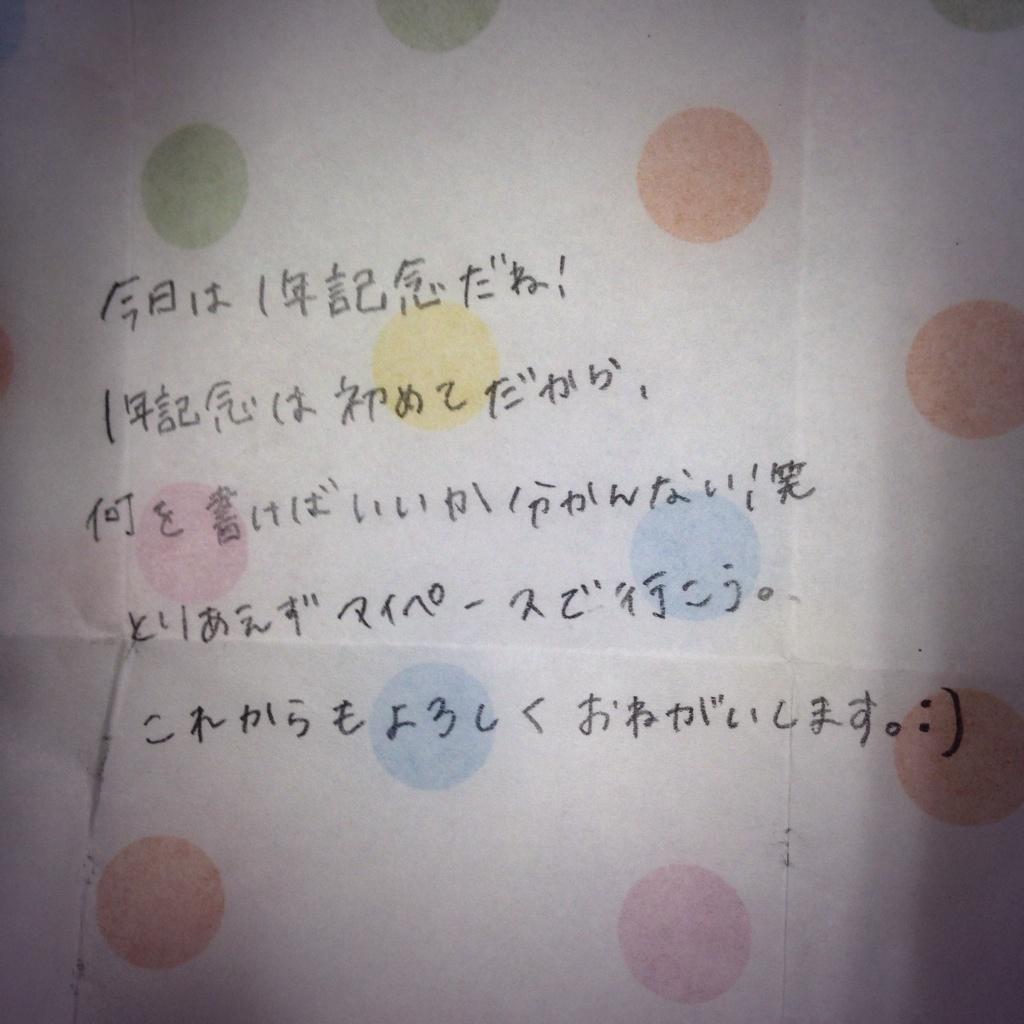 今日は1年記念だね!
1年記念は初めてだから、
何を書けばいいか分かんない!笑
とりあえずマイペースで行こう。
これからもよろしくおねがいします。:)